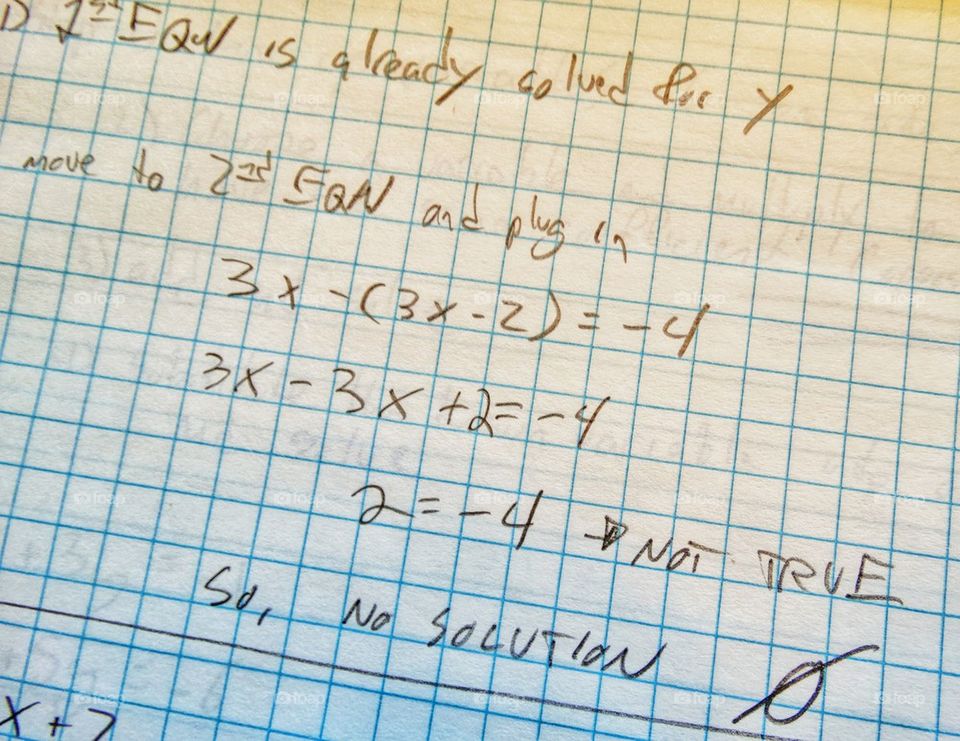 1) 1st EQN is already solved for y
move to 2nd EQN and plug in
3x - (3x - 2) = -4
3x - 3x + 2 = -4
2 = -4 → NOT TRUE
So, NO SOLUTION Ø
x + 7